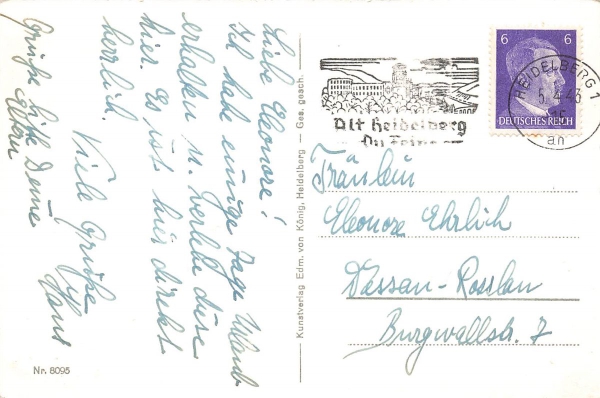 Liebe Eleonore!
Ich habe einige Tage Urlaub
erhalten u. verlebe diese
hier. Es ist hier direkt
herrlich.
Viele Grüße
Hans
Grüße bitte Deine
Eltern
Nr. 8095
Kunstverlag Edm. von König, Heidelberg – Ges. gesch.
Alt Heidelberg
Du Feine
6 6
DEUTSCHES REICH
HEIDELBERG 1
an
Fräulein
Eleonore Ehrlich
Dessau-Rosslau
Burgwallstr. 7